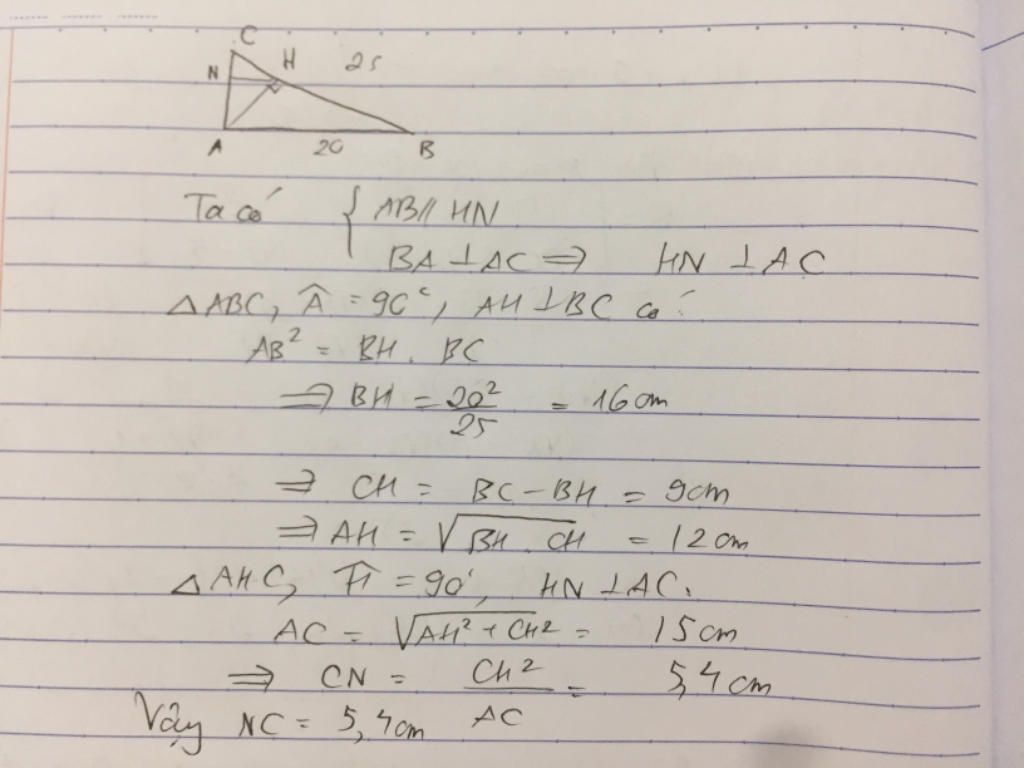 C
N H 25
A 20 B
Ta có { AB // HN
BA ⊥ AC ⇒ HN ⊥ AC
△ABC, Â = 90°, AH ⊥ BC có:
AB² = BH . BC
⇒ BH = 20²/25 = 16 cm
⇒ CH = BC - BH = 9cm
⇒ AH = √(BH . CH) = 12 cm
△AHC, Ĥ = 90°, HN ⊥ AC.
AC = √(AH² + CH²) = 15cm
⇒ CN = CH²/AC = 5,4 cm
Vậy NC = 5,4cm